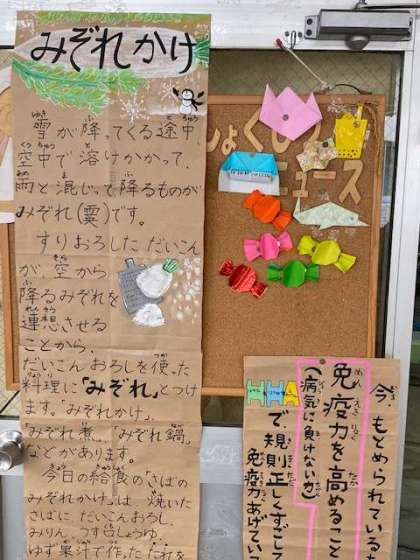 みぞれかけ
雪が降ってくる途中、
空中で溶けかかって、
雨と混じって降るものが
みぞれ(霙)です。
すりおろしただいこん
が、空から
降るみぞれを
連想させる
ことから、
だいこんおろしを使った
料理に「みぞれ」とつけ
ます。「みぞれかけ」、
「みぞれ煮」、「みぞれ鍋」
などがあります。
今日の給食の「さばの
みぞれかけ」は、焼いた
さばに、だいこんおろし、
みりん、うす口しょうゆ、
ゆず果汁で作ったたれを
ニュース
今、もとめられている
免疫力を高めること
(病気に負けない力)
HHA
で規則正しくすごして
免疫力あげてい